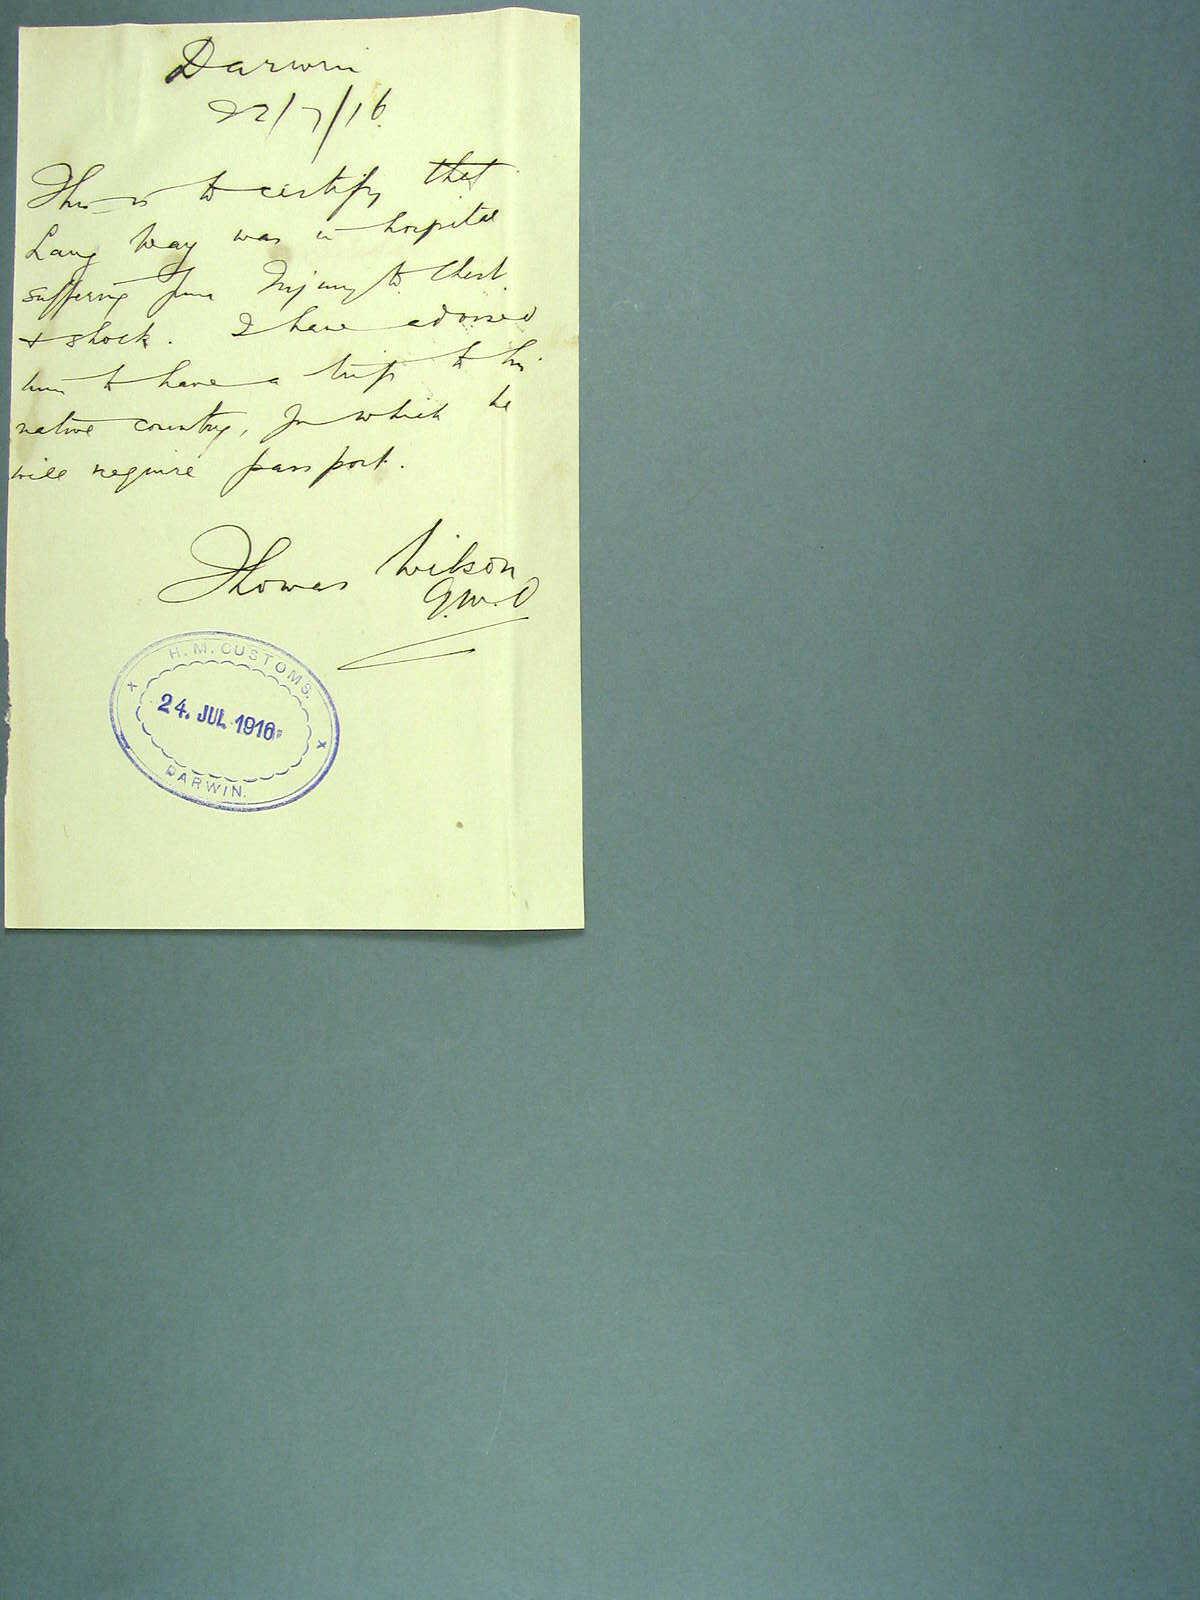 Darwin
22/7/16.
This is to certify that
Lang Way was in hospital
suffering from Injury to Chest
& shock. I have advised
him to have a trip to his
native country, for which he
will require passport.
Thomas Wilson
G.M.O
H.M. CUSTOMS.
24. JUL 1916
DARWIN.